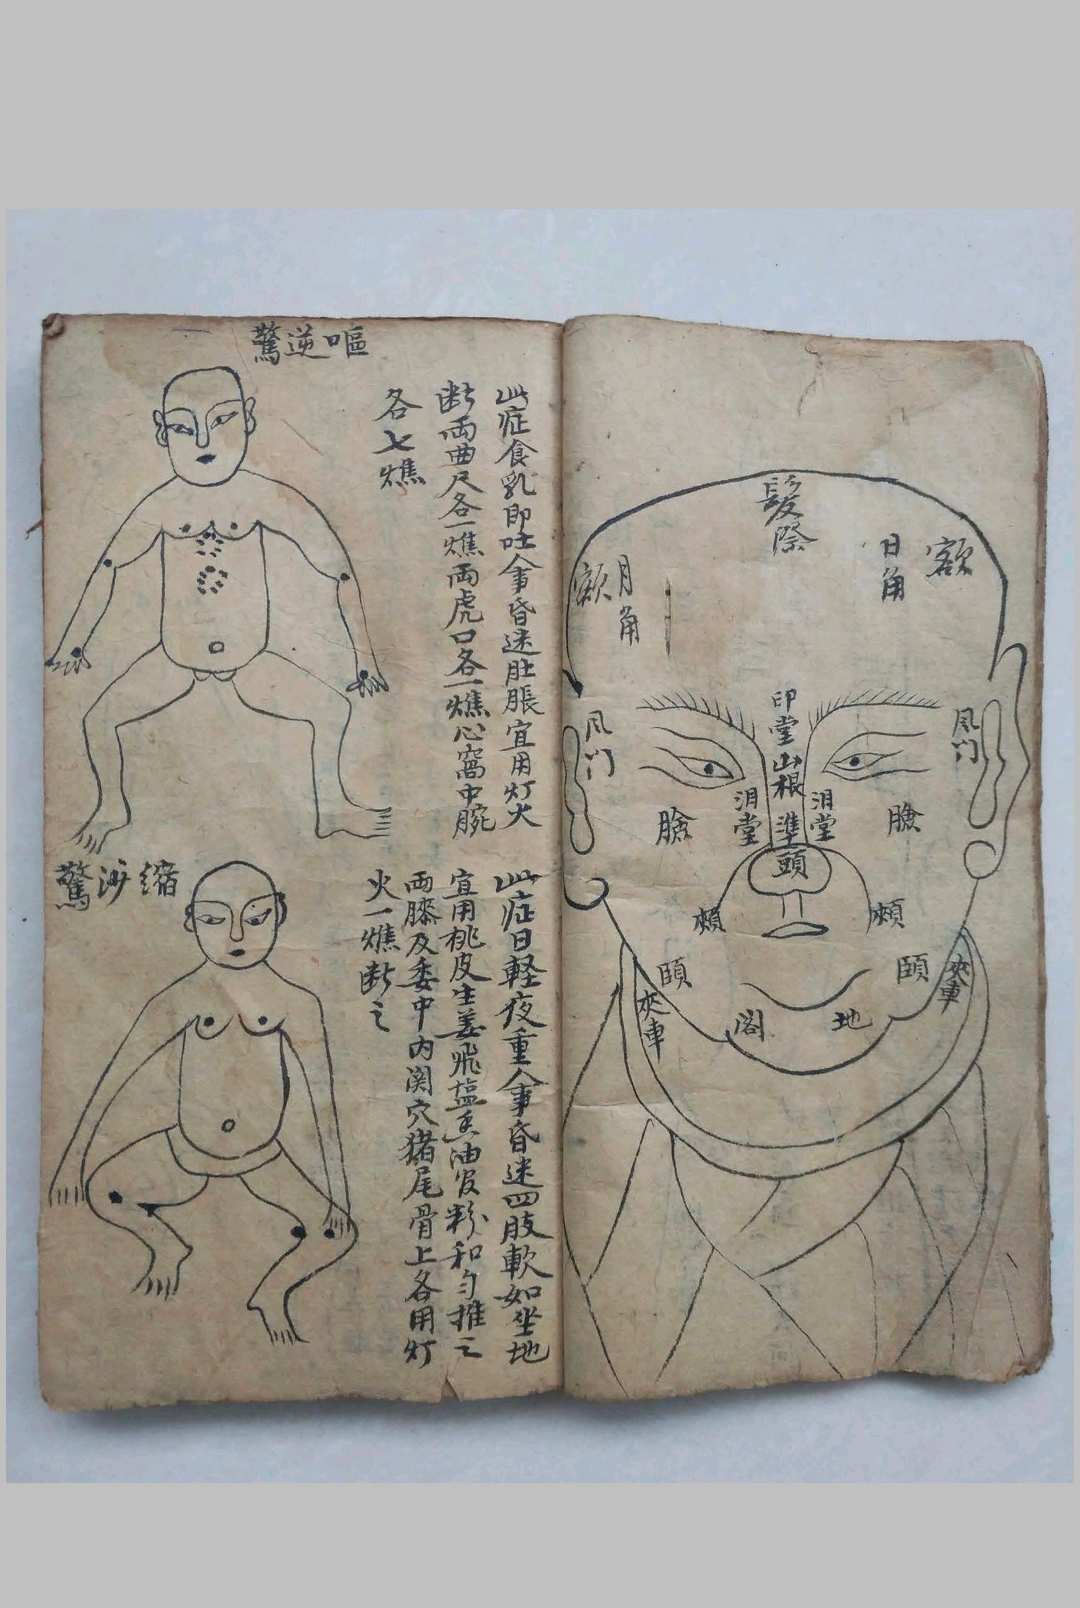 髮際
額
日角
月角
額
印堂
山根
準頭
風门
風门
泪堂
泪堂
臉
臉
頰
頰
頤
頤
夾車
夾車
地
閣
嘔逆驚
此症食乳即吐人事昏迷肚脹宜用灯火
断両曲尺各一燋両虎口各一燋心窩中腕
各七燋
縮沙驚
此症日軽夜重人事昏迷四肢軟如坐地
宜用桃皮生姜飛塩香油官粉和匀推之
両膝及委中内関穴猪尾骨上各用灯
火一燋断之